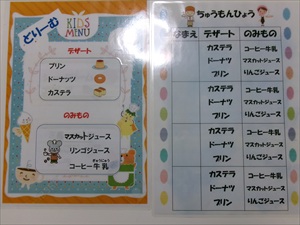 どりーむ
KIDS
MENU
デザート
プリン
ドーナーツ
カステラ
のみもの
マスカットジュース
リンゴジュース
コーヒー牛乳
ちゅうもんひょう
なまえ デザート のみもの
カステラ コーヒー牛乳
ドーナツ マスカットジュース
プリン りんごジュース
カステラ コーヒー牛乳
ドーナツ マスカットジュース
プリン りんごジュース
カステラ コーヒー牛乳
ドーナツ マスカットジュース
プリン りんごジュース
カステラ コーヒー牛乳
ドーナツ マスカットジュース
プリン りんごジュース